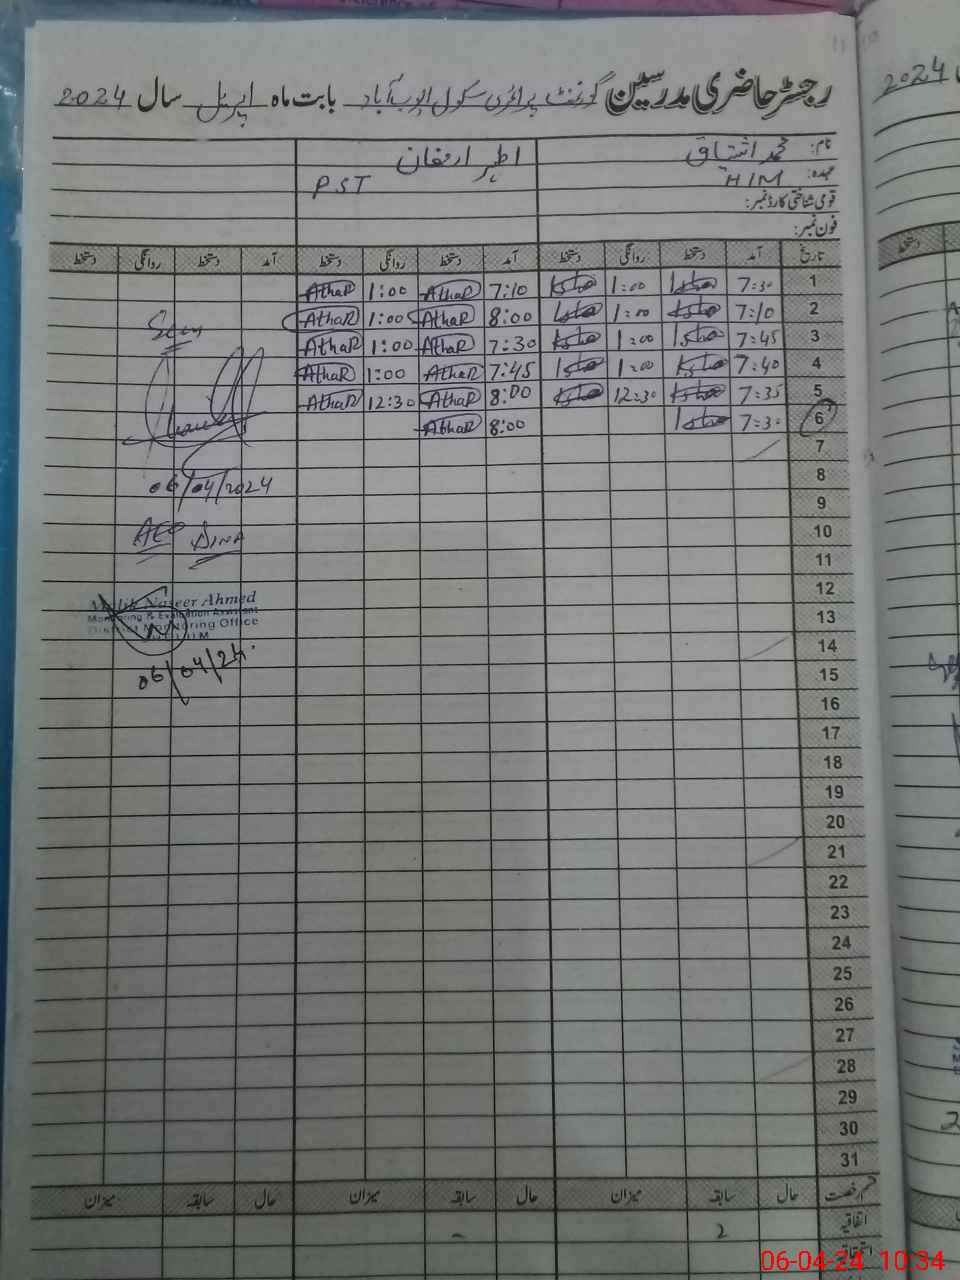 رجسٹر حاضری مدرسین گورنمنٹ پرائمری سکول ایوب آباد بابت ماہ اپریل سال 2024
نام: محمد اشتیاق اطہر ارمغان
عہدہ: H/M PST
قومی شناختی کارڈ نمبر:
فون نمبر:
تاریخ آمد دستخط روانگی دستخط آمد دستخط روانگی دستخط آمد دستخط روانگی دستخط
1 7:30 1:00 7:10 AthaR 1:00 AthaR
2 7:10 1:00 8:00 AthaR 1:00 AthaR
3 7:45 1:00 7:30 AthaR 1:00 AthaR
4 7:40 1:00 7:45 AthaR 1:00 AthaR
5 7:35 12:30 8:00 AthaR 12:30 AthaR
6 7:30 8:00 AthaR
7
8
9
10
11
12
13
14
15
16
17
18
19
20
21
22
23
24
25
26
27
28
29
30
31
Seen
06/04/2024
AEO
Malik Naseer Ahmed
Monitoring & Evaluation Assistant
District Monitoring Office
06/04/24.
قسم رخصت حال سابقہ میزان حال سابقہ میزان حال سابقہ میزان
اتفاقیہ 2 -
استحقاقیہ
2024
دستخط
06-04-24 10:34